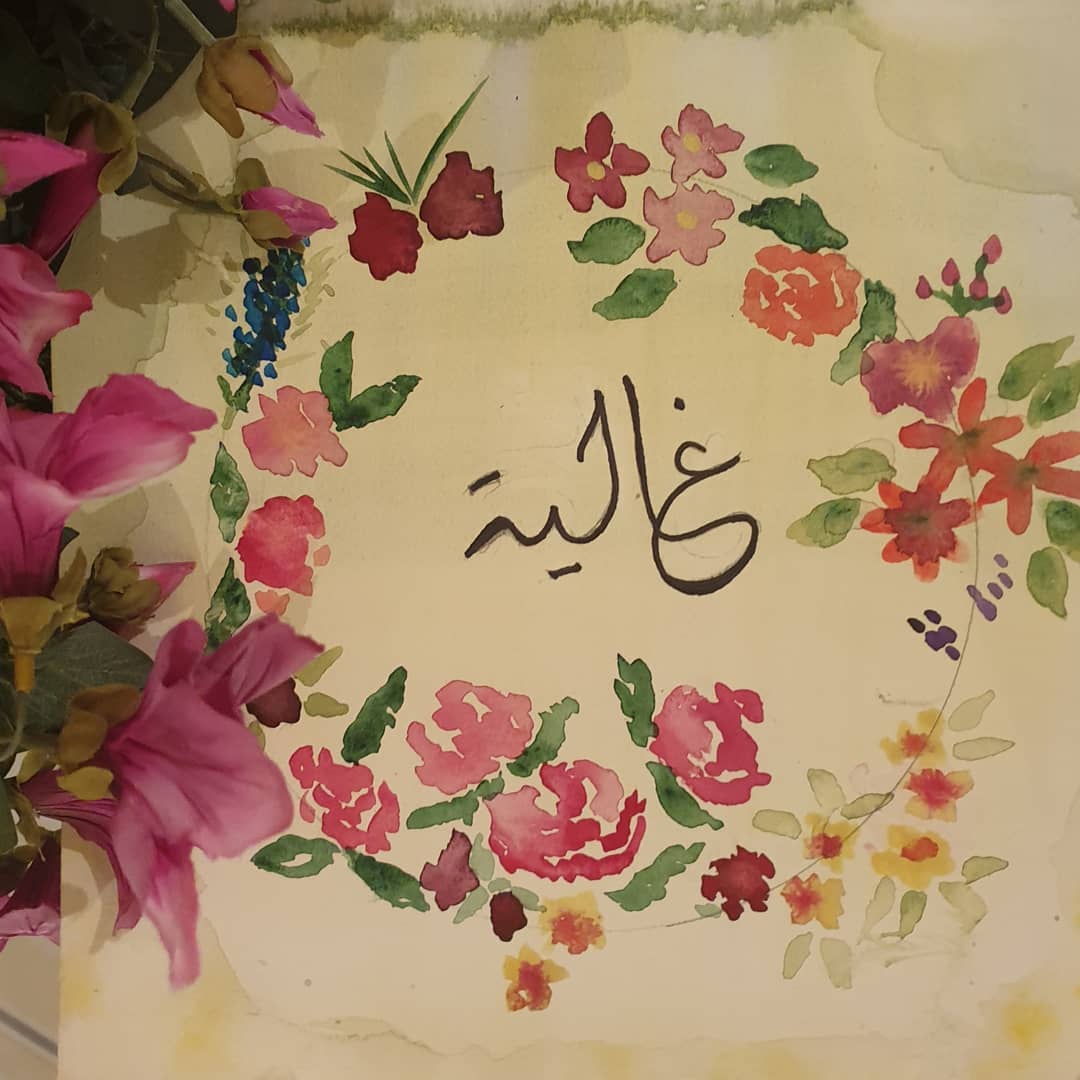 غالية